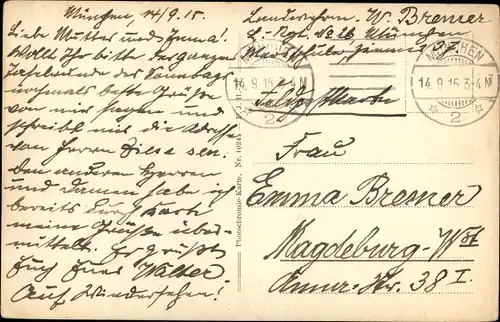 München, 14/9.15.
Liebe Mutter und Emma!
Wollt Ihr bitte der ganzen
Tafelrunde des Sonntags
nochmals beste Grüße
von mir sagen und
schreibt mir die Adresse
von Herrn Zilse sen.
Den anderen Herren
und Damen habe ich
bereits durch Karte
meine Grüße über-
mittelt. Es grüßt
Euch Euer Walter
Auf Wiedersehen!
Landsturm. W. Bremer
München
MÜNCHEN
14.9.15.3-4N
2
MÜNCHEN
14.9.15.3-4N
2
Feldpostkarte
Photochromie-Karte. Nr.
Frau
Emma Bremer
Magdeburg-Wst
Annas-Str. 38 I.